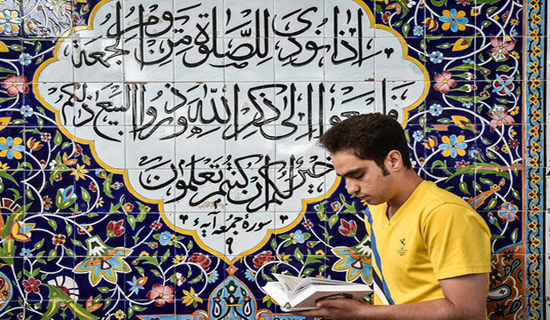 اذا نودى للصلوة من يوم الجمعة
فاسعوا الى ذكر الله وذروا البيع ذلكم
خير لكم ان كنتم تعلمون
سورة جمعه آية
٩